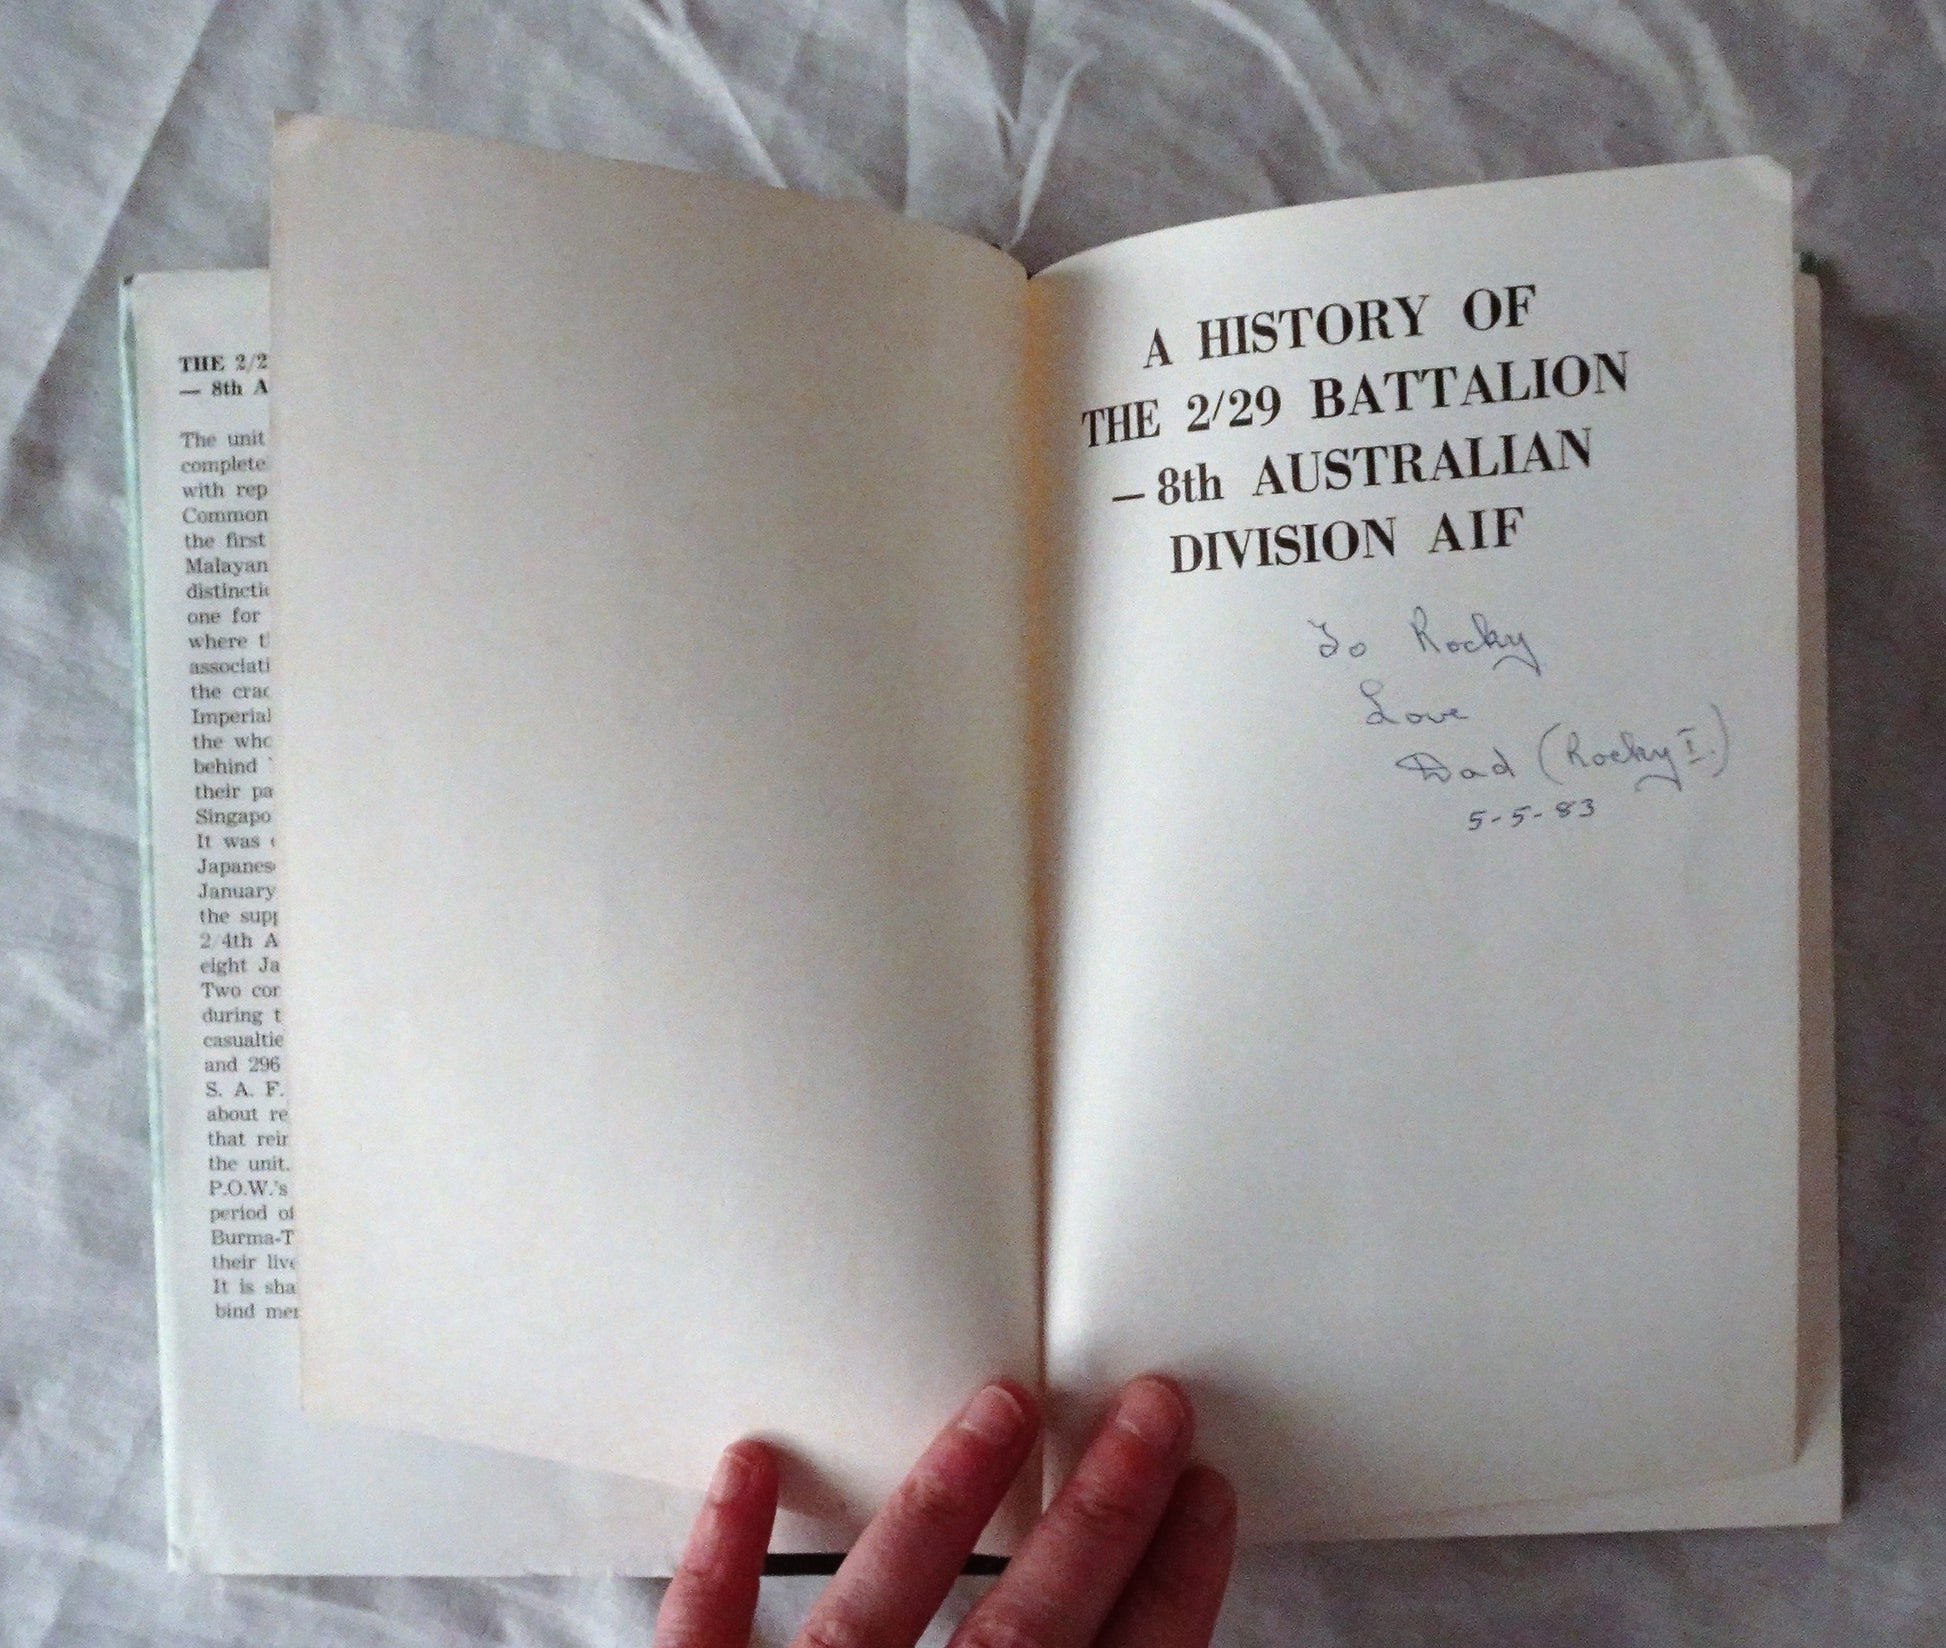 THE 2/2
— 8th A
The unit
complete
with rep
Common
the first
Malayan
distincti
one for
where t
associati
the crac
Imperial
the who
behind
their pa
Singapo
It was
Japanes
January
the supp
2/4th A
eight Ja
Two cor
during t
casualtie
and 296
S. A. F.
about re
that rein
the unit.
P.O.W.'s
period of
Burma-T
their live
It is sha
bind mem
A HISTORY OF
THE 2/29 BATTALION
— 8th AUSTRALIAN
DIVISION AIF
To Rocky
Love
Dad (Rocky I.)
5-5-83